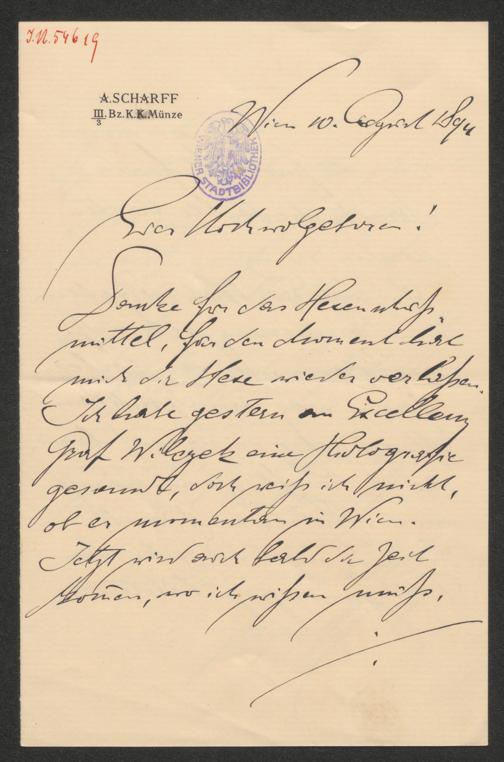 I.N. 54619
A. SCHARFF
III./3 Bz. K.K. Münze
WIENER STADTBIBLIOTHEK
Wien 10. August 1894
Euer Hochwolgeboren!
Danke für das Hexenschuß
mittel, für den Moment hat
mich die Hexe wieder verlaßen.
Ich habe gestern an Excellenz
Graf Wilczek eine
gesandt, doch weiß ich nicht,
ob er momentan in Wien.
Jetzt wird auch bald die Zeit
kom̄en, wo ich wißen muß,